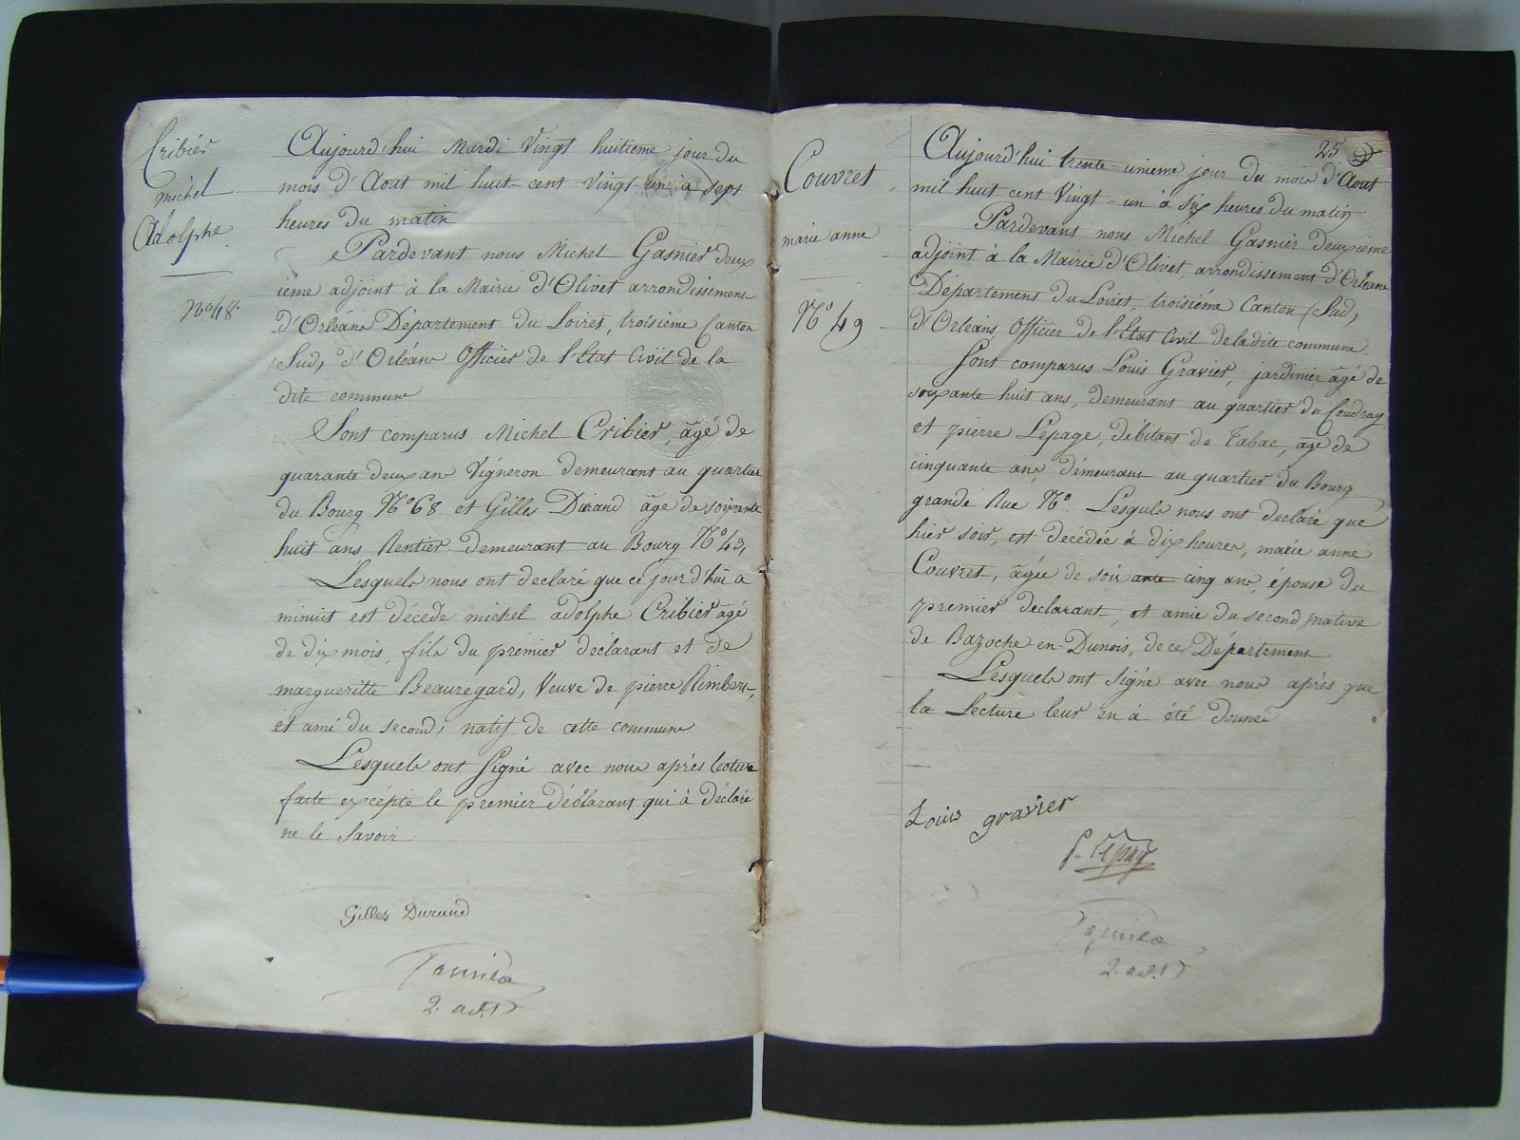 Cribier
michel
Adolphe
No 48.
Aujourd'hui Mardi Vingt huitieme jour du
mois d'Aout mil huit-cent vingt un a Sept
heures du matin
Pardevant nous Michel Gasnier deux
ieme adjoint à la Mairie d'Olivet arrondissement
d'Orléans Département du Loiret, troisieme Canton
(Sud, d'Orléans Officier de l'Etat Civil de la
dite commune
Sont comparus Michel Cribier, âgé de
quarante deux ans Vigneron demeurant au quartier
du Bourg No 68 et Gilles Durand âgé de soixante
huit ans Rentier demeurant au Bourg No 49,
Lesquels nous ont declaré que ce jourd'hui a
minuit est décédé michel adolphe Cribier âgé
de dix mois, fils du premier déclarant et de
margueritte Beauregard, Veuve de pierre Rimbert,
et ami du second, natif de cette commune
Lesquels ont Signé avec nous après lecture
faite excépté le premier déclarant qui à déclaré
ne le Savoir
Gilles Durand
2. adjt
25
Couvret
marie anne
No 49
Aujourd'hui trente-unieme jour du mois d'Aout
mil huit cent Vingt-un à Six heures du matin
Pardevant nous Michel Gasnier deuxieme
adjoint à la Mairie d'Olivet, arrondissement d'Orléans
Département du Loiret, troisième Canton (Sud,
d'Orléans Officier de l'Etat Civil de ladite commune
Sont comparus Louis Gravier, jardinier âgé de
soixante huit ans, demeurant au quartier du Coudray
et pierre Lepage, debitant de Tabac, âgé de
cinquante ans, démeurant au quartier du Bourg
grande Rue No. Lesquels nous ont declaré que
hier soir, est décédée à dix heures, marie anne
Couvret, âgée de soixante cinq ans, épouse du
premier declarant, et amie du second native
de Bazoche-en-Dunois, de ce Département
Lesquels ont Signé avec nous après que
la Lecture leur en à été donnée
Louis gravier
P. Lepage
2. adjt